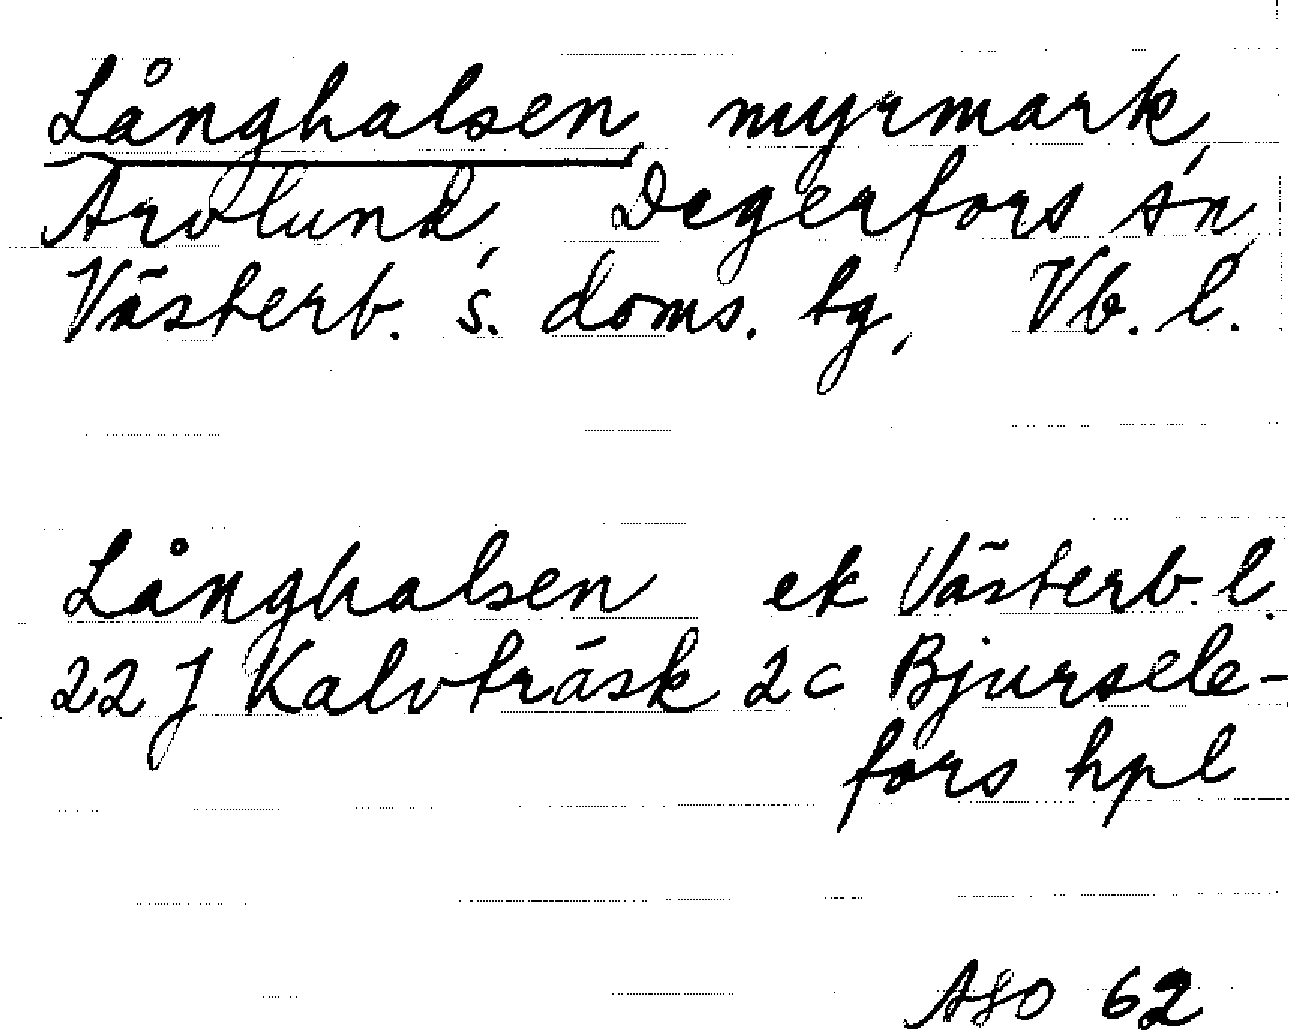 Långhalsen, myrmark,
Arvlund, Degerfors sn,
Västerb. s. doms. tg, Vb. l.
Långhalsen ek Västerb. l.
22 J Kalvträsk 2c Bjursele-
fors hpl
ASO 62